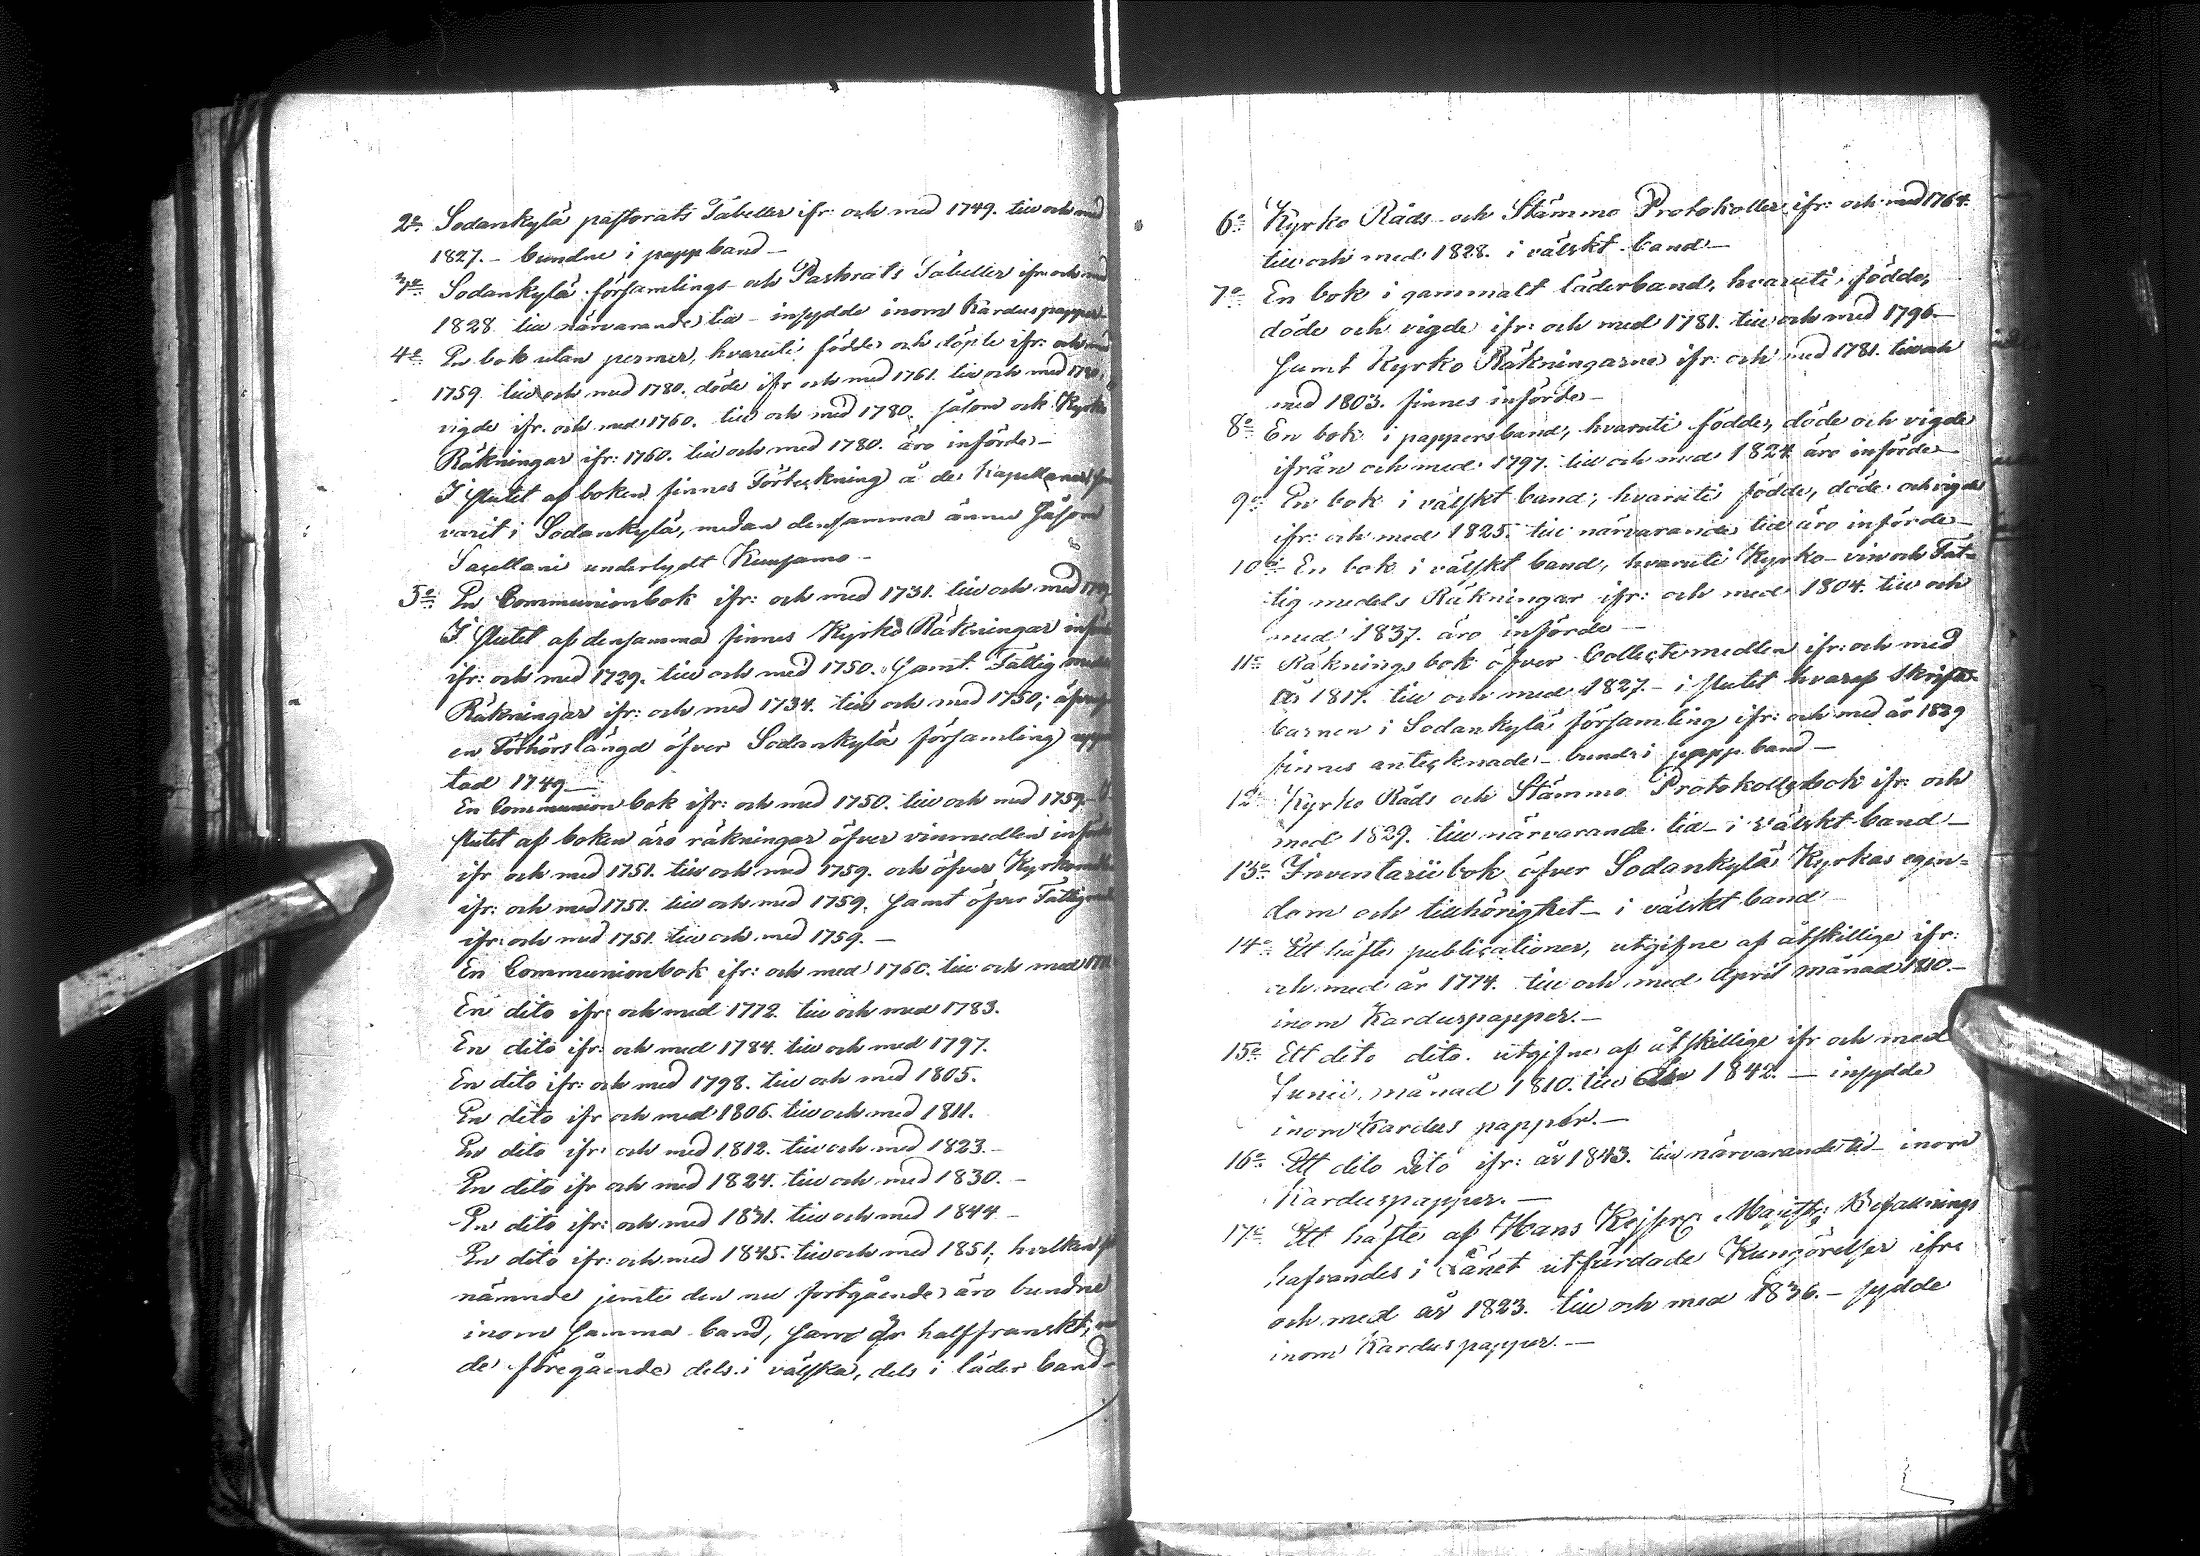 2o Sodankylä pastorats Tabeller ifr: och med 1749. till och med
1827. – bundne i pappband –
3o Sodankylä församlings och Pastorats Tabeller ifr: och med
1828 till närvarande tid – insydde inom Karduspapper –
4o En bok utan permar, hvaruti födde och döpte ifr: och med
1759 till och med 1780. döde ifr och med 1761. till och med 1780,
vigde ifr. och med 1760. till och med 1780. såsom ock Kyrko
Räkningar ifr: 1760. till och med 1780. äro införde –
I slutet af boken finnes Förteckning å de Kapellaner som
varit i Sodankylä, medan densamma ännu såsom
Sacellani underlydt Kuusamo –
5o En Communionbok ifr: och med 1731. till och med
I slutet af densamma finnes Kyrko Räkningar införde
ifr: och med 1729. till och med 1750. samt Fattig medels
Räkningar ifr: och med 1734. till och med 1750;
en Förhörslängd öfver Sodankylä församling upprät
tad 1749 –
En Communion bok ifr: och med 1750. till och med 1759. – I
slutet af boken äro räkningar öfver vinmedlen införde
ifr och med 1751. till och med 1759. och öfver
ifr: och med 1751. till och med 1759. samt öfver
ifr: och med 1751. till och med 1759. –
En Communionbok ifr: och med 1760. till och med
En dito ifr: och med 1772. till och med 1783.
En dito ifr: och med 1784. till och med 1797.
En dito ifr: och med 1798. till och med 1805.
En dito ifr och med 1806. till och med 1811.
En dito ifr: och med 1812. till och med 1823. –
En dito ifr och med 1824. till och med 1830. –
En dito ifr: och med 1831. till och med 1844 –
En dito ifr: och med 1845. till och med 1851; hvilken
nämnde jemte den nu fortgående äro bundne
inom samma band, som är halffranskt;
de föregående dels i välska, dels i läder band –
6o Kyrko Råds och Stämmo Protokoller ifr: och med 1764.
till och med 1828. i välskt band –
7o En bok i gammalt läderband, hvaruti födde,
döde och vigde ifr: och med 1781. till och med 1796 –
samt Kyrko Räkningarne ifr: och med 1781. till och
med 1803. finnes införde –
8o En bok i pappersband, hvaruti födde, döde och vigde
ifrån och med 1797. till och med 1824 äro införde –
9o En bok i välskt band, hvaruti födde, döde och vigde
ifr: och med 1825. till närvarande tid äro införde –
10o En bok i välskt band, hvaruti Kyrko- vin och Fat-
tig medels Räkningar ifr: och med 1804. till och
med 1837. äro införde –
11o Räknings bok öfver Collectemedlen ifr: och med
år 1817. till och med 1827. – i slutet hvaraf Skrifte-
barnen i Sodankylä församling ifr: och med år 1829
finnes antecknade – bunden i pappband –
12o Kyrko Råds och Stämmo Protokollsbok ifr: och
med 1829. till närvarande tid – i välskt band –
13o Inventarii bok öfver Sodankylä Kyrkas egen-
dom och tillhörighet – i välskt band –
14o Ett häfte publicationer, utgifne af åtskillige ifr:
och med år 1774. till och med April månad 1810. –
inom Karduspapper. –
15o Ett dito dito. utgifne af åtskillige ifr och med
Junii månad 1810. till år 1842. – insydde
inom Kardus papper. –
16o Ett dito dito ifr: år 1843. till närvarande tid – inom
Karduspapper. –
17o Ett häfte af Hans Kejserl. Majts: Befallnings
hafvandes i Länet utfärdade Kungörelser ifr:
och med år 1823. till och med 1836. – sydde
inom Karduspapper. –